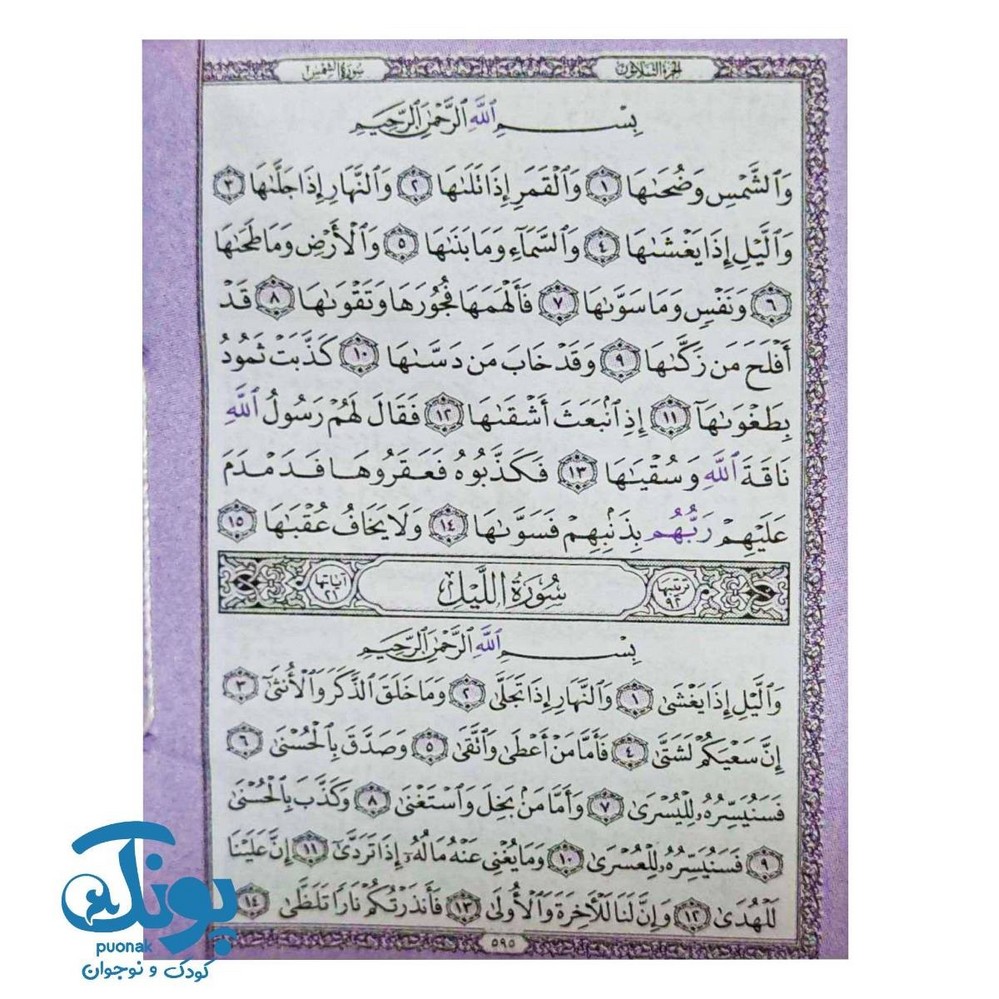 الجزء الثلاثون
سورة الشمس
بِسْمِ ٱللَّهِ ٱلرَّحْمَٰنِ ٱلرَّحِيمِ
وَٱلشَّمْسِ وَضُحَىٰهَا ١ وَٱلْقَمَرِ إِذَا تَلَىٰهَا ٢ وَٱلنَّهَارِ إِذَا جَلَّىٰهَا ٣
وَٱلَّيْلِ إِذَا يَغْشَىٰهَا ٤ وَٱلسَّمَآءِ وَمَا بَنَىٰهَا ٥ وَٱلْأَرْضِ وَمَا طَحَىٰهَا
٦ وَنَفْسٍ وَمَا سَوَّىٰهَا ٧ فَأَلْهَمَهَا فُجُورَهَا وَتَقْوَىٰهَا ٨ قَدْ
أَفْلَحَ مَن زَكَّىٰهَا ٩ وَقَدْ خَابَ مَن دَسَّىٰهَا ١٠ كَذَّبَتْ ثَمُودُ
بِطَغْوَىٰهَآ ١١ إِذِ ٱنۢبَعَثَ أَشْقَىٰهَا ١٢ فَقَالَ لَهُمْ رَسُولُ ٱللَّهِ
نَاقَةَ ٱللَّهِ وَسُقْيَٰهَا ١٣ فَكَذَّبُوهُ فَعَقَرُوهَا فَدَمْدَمَ
عَلَيْهِمْ رَبُّهُم بِذَنۢبِهِمْ فَسَوَّىٰهَا ١٤ وَلَا يَخَافُ عُقْبَٰهَا ١٥
ترتيبها ٩٢
سُورَةُ اللَّيْلِ
آياتها ٢١
بِسْمِ ٱللَّهِ ٱلرَّحْمَٰنِ ٱلرَّحِيمِ
وَٱلَّيْلِ إِذَا يَغْشَىٰ ١ وَٱلنَّهَارِ إِذَا تَجَلَّىٰ ٢ وَمَا خَلَقَ ٱلذَّكَرَ وَٱلْأُنثَىٰٓ ٣
إِنَّ سَعْيَكُمْ لَشَتَّىٰ ٤ فَأَمَّا مَنْ أَعْطَىٰ وَٱتَّقَىٰ ٥ وَصَدَّقَ بِٱلْحُسْنَىٰ ٦
فَسَنُيَسِّرُهُۥ لِلْيُسْرَىٰ ٧ وَأَمَّا مَنۢ بَخِلَ وَٱسْتَغْنَىٰ ٨ وَكَذَّبَ بِٱلْحُسْنَىٰ
٩ فَسَنُيَسِّرُهُۥ لِلْعُسْرَىٰ ١٠ وَمَا يُغْنِى عَنْهُ مَالُهُۥٓ إِذَا تَرَدَّىٰٓ ١١ إِنَّ عَلَيْنَا
لَلْهُدَىٰ ١٢ وَإِنَّ لَنَا لَلْءَاخِرَةَ وَٱلْأُولَىٰ ١٣ فَأَنذَرْتُكُمْ نَارًا تَلَظَّىٰ ١٤
٥٩٥
پونک
puonak
کودک و نوجوان